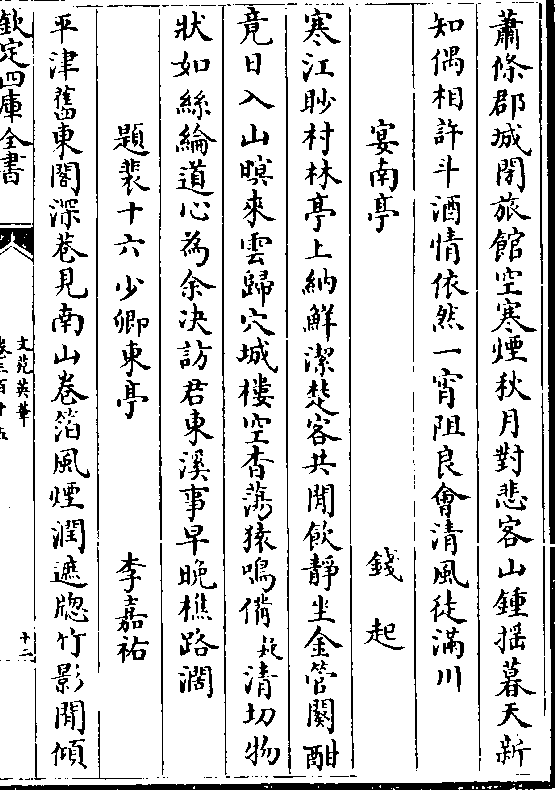 蕭條郡城閉旅館空寒煙秋月對悲客山鍾揺暮天新
知偶相許斗酒情依然一宵阻良會清風徒滿川
宴南亭　錢起
寒江眇村林亭上納鮮潔楚客共閒飲靜坐金管闋酣
竟日入山暝來雲歸穴城樓空杳藹猿鳴備疑清切物
狀如絲綸道心為余決訪君東溪事早晚樵路濶
題裴十六少卿東亭　李嘉祐
平津舊東閣深巷見南山卷箔風煙潤遮牕竹影閒傾
欽定四庫全書
文苑英華
卷三百十五
十二